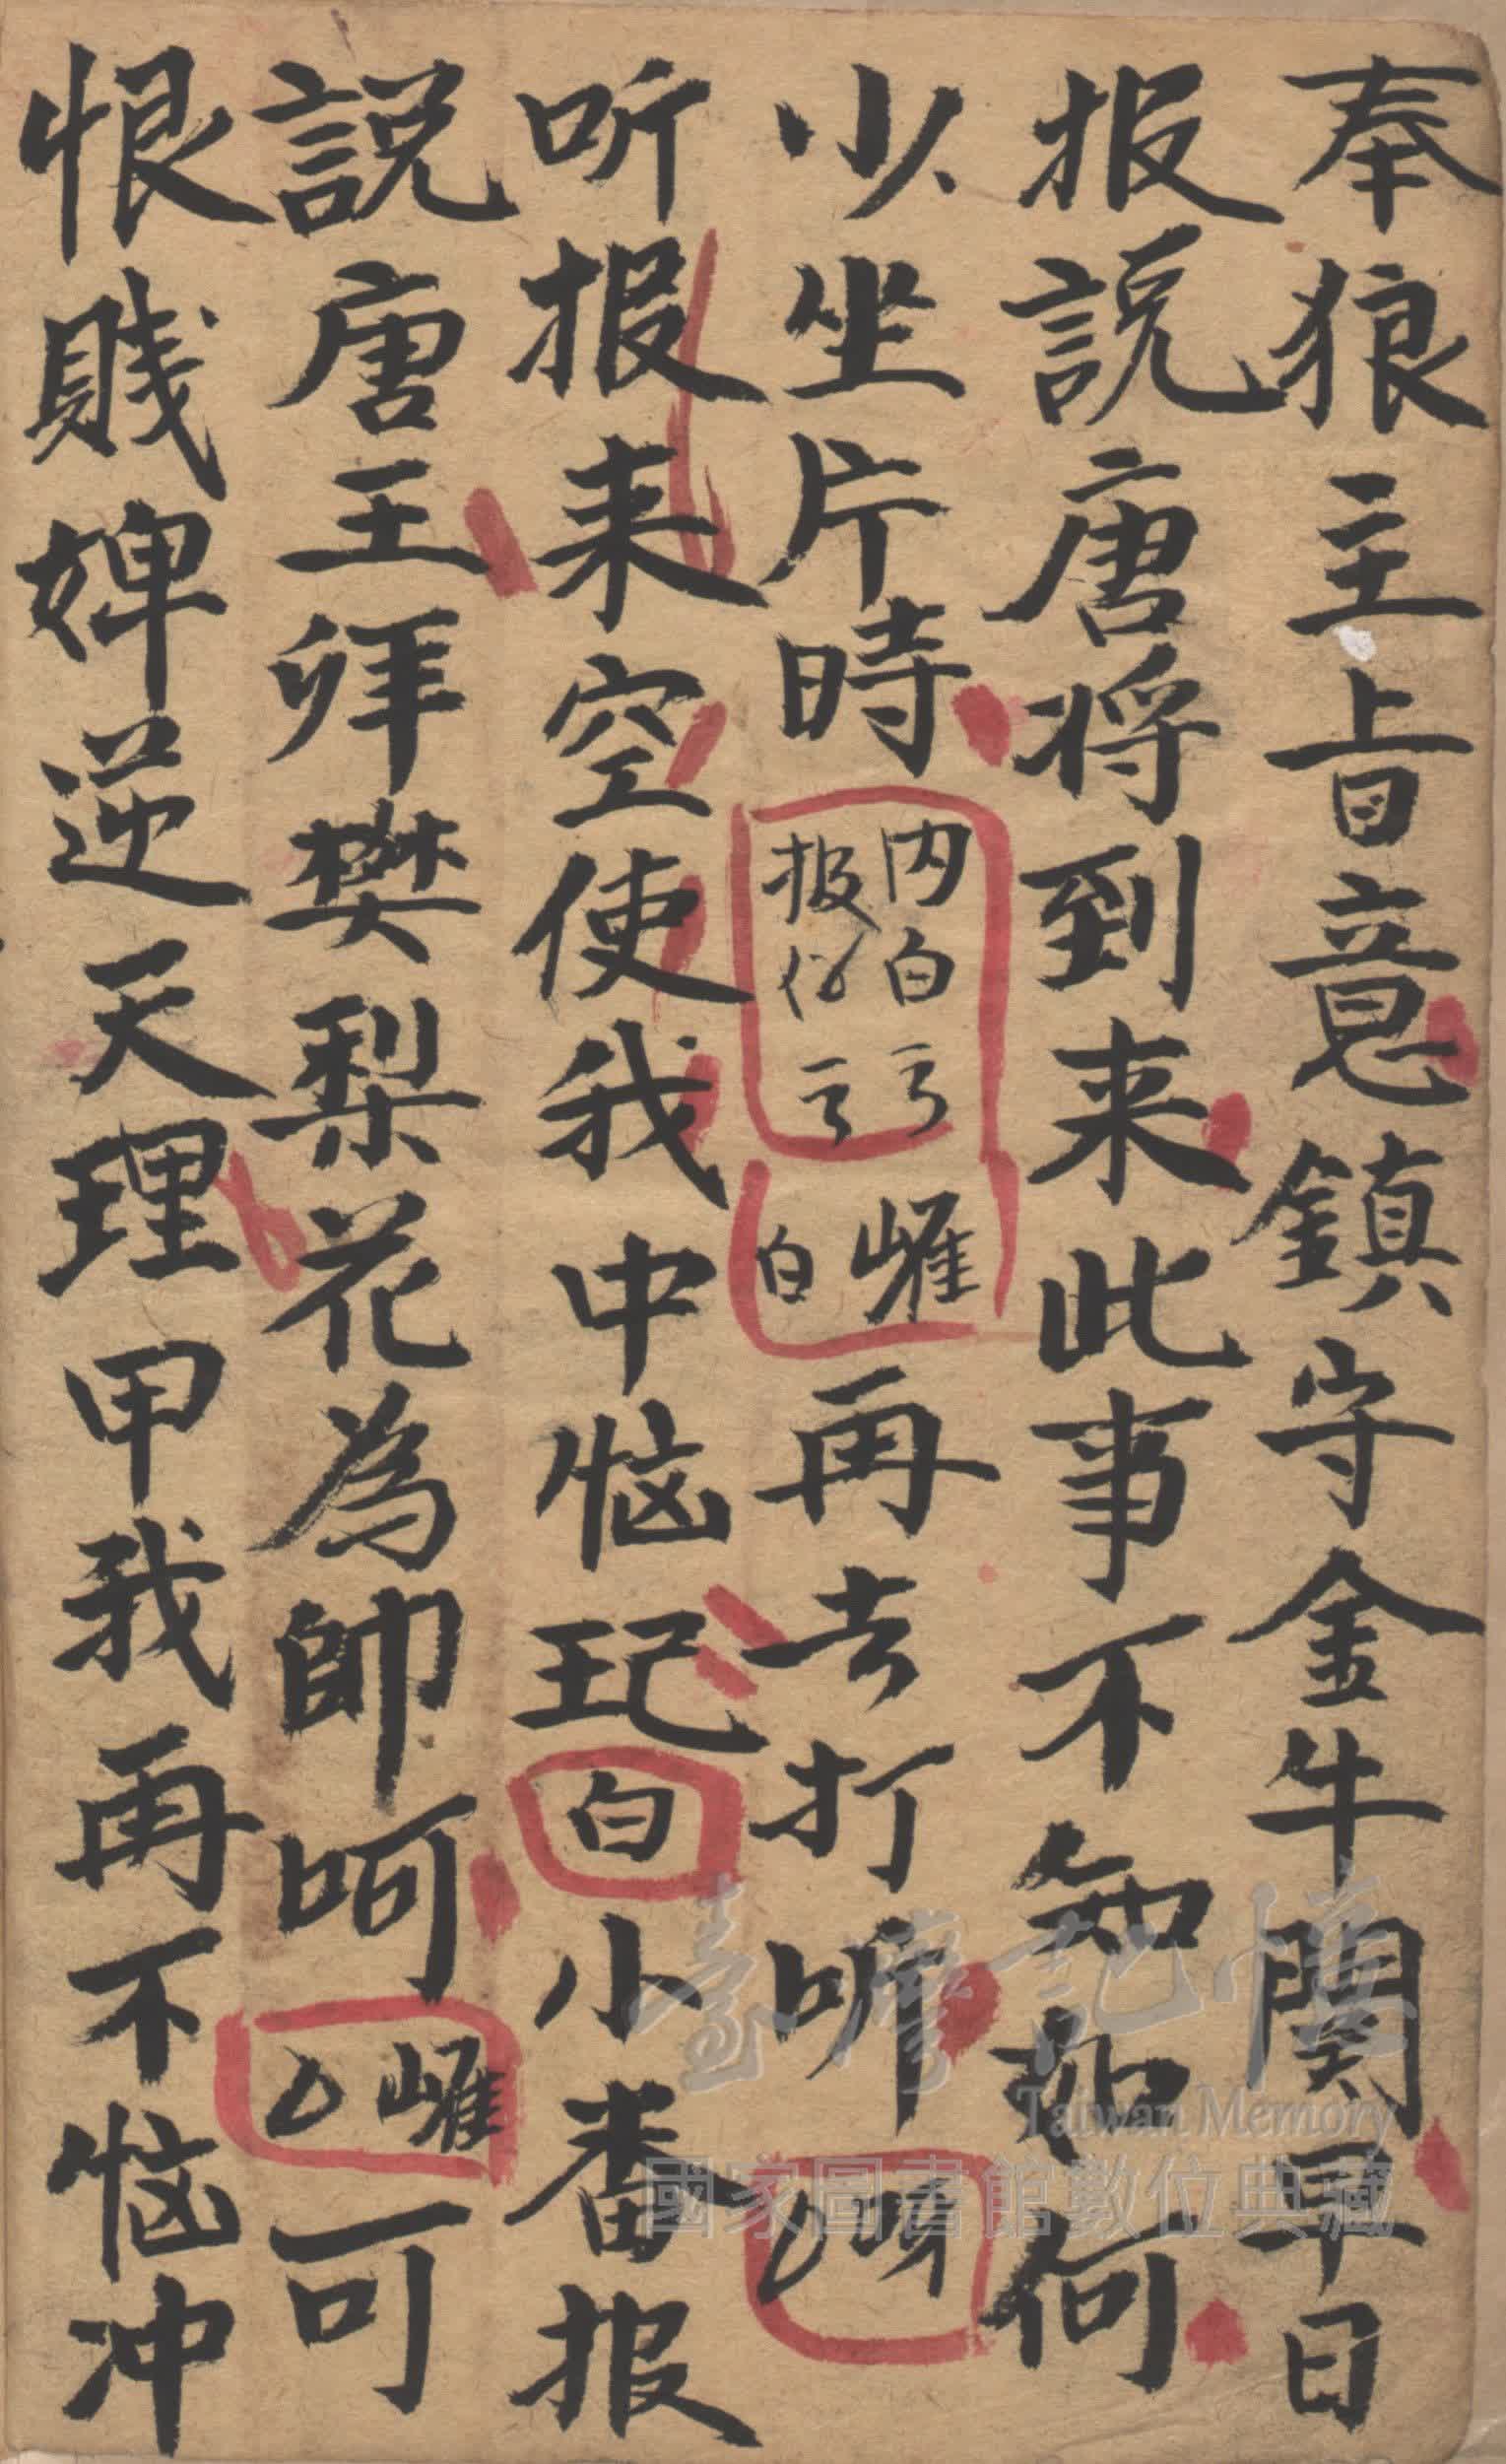 奉狼主上旨意鎮守金牛関早日
报説唐将到来此事不知如何
少坐片時
内白亐
报亐
嶉
白
再去打听
听报来空使我中恼
白
小番报
説唐王拜樊梨花為帥呵
嶉
可
恨賤婢逆天理甲我再不恼冲
臺灣記憶
Taiwan Memory
國家圖書館數位典藏